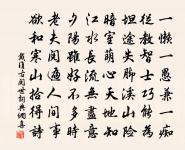 一懶一愚兼一痴
從教智士巧能為
坦途失腳溪山險
暗室萌心天地知
江水長流無盡意
夕陽雖好不多時
老夫閱遍人間事
欲和寒山拾得詩
戴復古閱世詞典網書